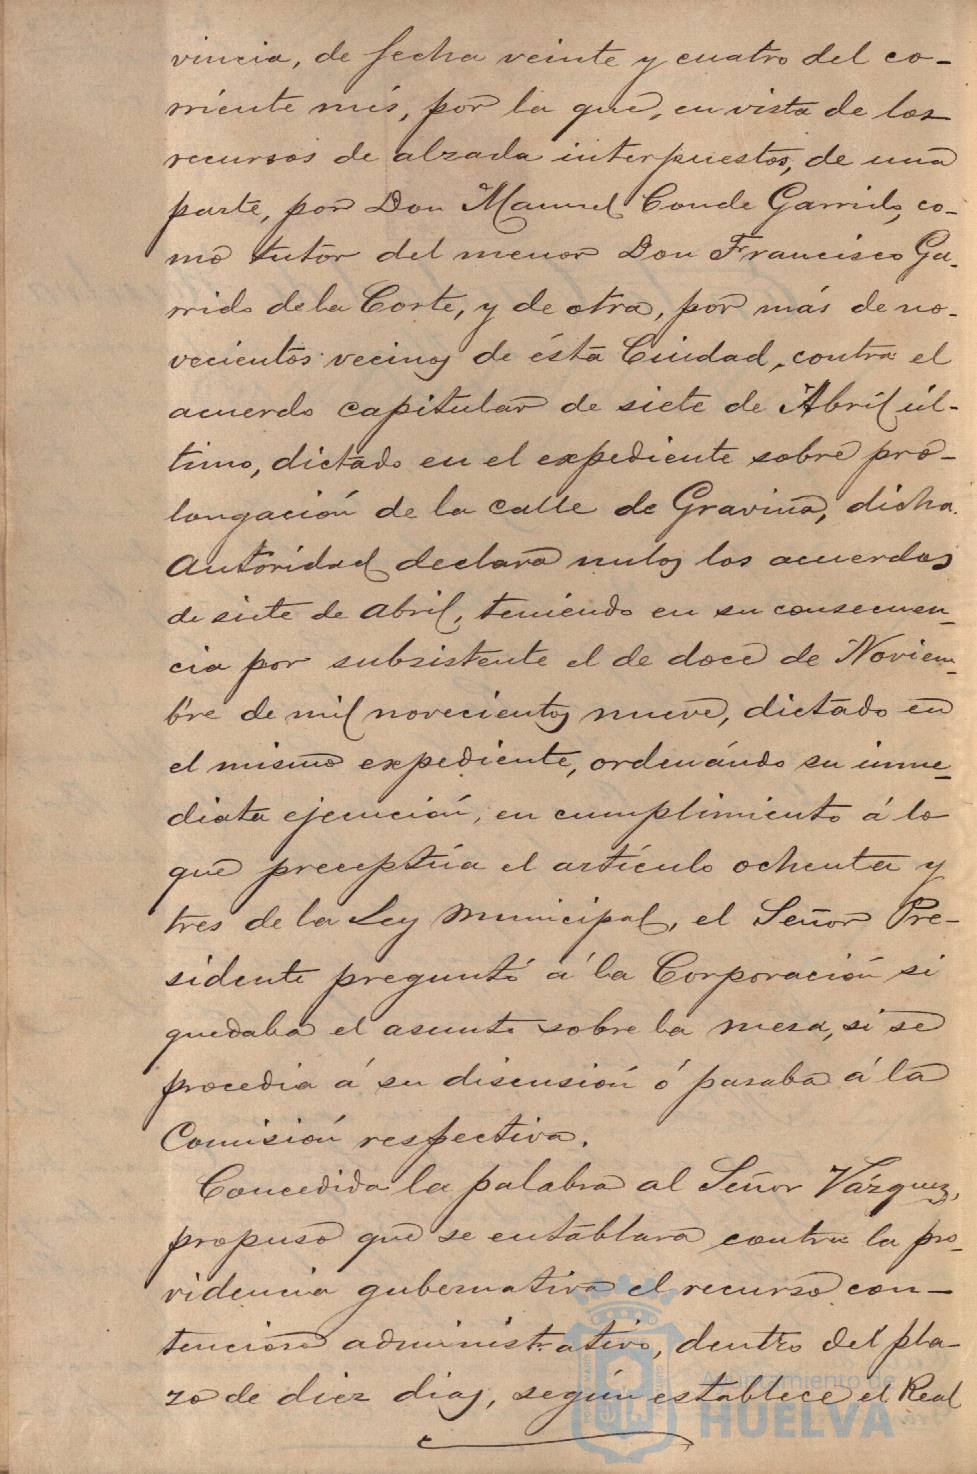 vincia, de fecha veinte y cuatro del co-
rriente mes, por la que, en vista de los
recursos de alzada interpuestos, de una
parte, por Don Manuel Conde Garrido, co-
mo tutor del menor Don Francisco Ga-
rrido de la Corte, y de otra, por más de no-
vecientos vecinos de ésta Ciudad, contra el
acuerdo capitular de siete de Abril úl-
timo, dictado en el expediente sobre pro-
longación de la calle de Gravina, dicha
Autoridad declara nulos los acuerdos
de siete de Abril, teniendo en su consecuen-
cia por subsistente el de doce de Noviem-
bre de mil novecientos nueve, dictado en
el mismo expediente, ordenándo su inme-
diata ejecución, en cumplimiento á lo
que preceptúa el artículo ochenta y
tres de la Ley Municipal, el Señor Pre-
sidente preguntó á la Corporación si
quedaba el asunto sobre la mesa, si se
procedia á su discusión ó pasaba á la
Comisión respectiva.
Concedida la palabra al Señor Vázquez,
propuso que se entablara contra la pro-
videncia gubernativa el recurso con-
tencioso administrativo, dentro del pla-
zo de diez dias, según establece el Real
Ayuntamiento de
HUELVA